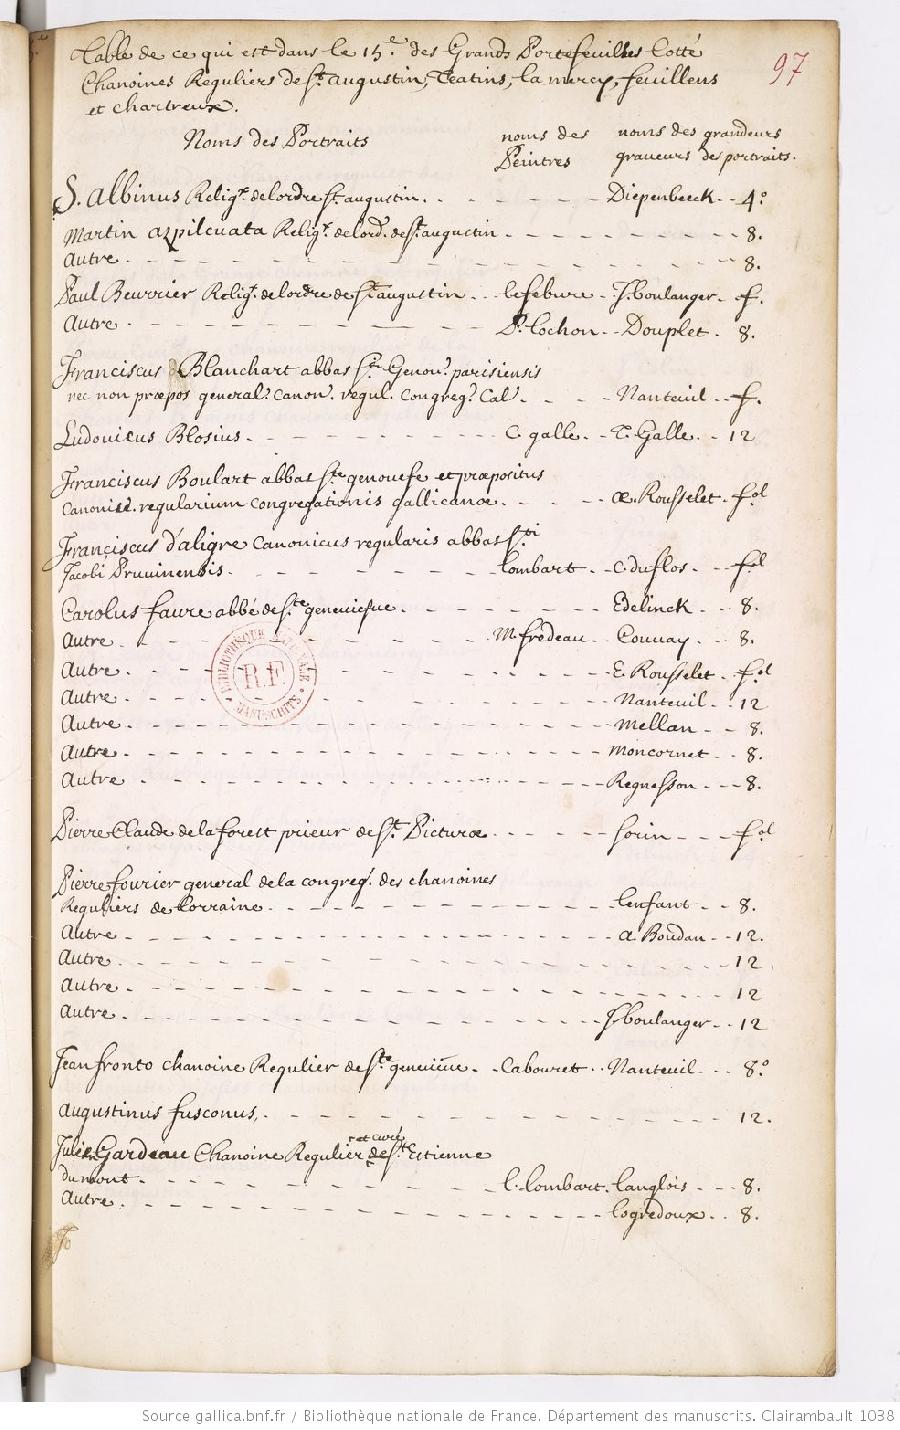 Table de ce qui est dans le 15e. des Grands Portefeuilles Cotté
Chanoines Reguliers de St. augustin, Teatins, la mercy, feuillens
et chartreux.
97
Noms des Portraits noms des Peintres noms des graveurs grandeurs de portraits.
S. Albinus Religr. de lordre St. augustin. Diepenbeeck 4o
Martin azpilcuata Religr. de lord. de St. augustin 8.
Autre 8.
Paul Beurrier Religr. de lordre de St. augustin lefebure J. boulanger f.
Autre P. Lochon Douplet 8.
Franciscus Blanchart abbas Ste. Genov. parisiensis
nec non præpos generals. Canon. regul. Congreg. Cal. Nanteuil f.
Ludovicus Blosius C. galle C. Galle 12
Franciscus Boulart abbas Ste. genouefe et præpositus
Canonic. regularium Congregationis gallicanæ Æ Rousselet fol
Franciscus d'aligre Canonicus regularis abbas Sti
Jacobi Pruvinensis lombart C. duflos fol
Carolus faure abbé de Ste. geneviefue Edelinck 8.
Autre M. frodeau Couuay 8.
Autre E. Rousselet fol
Autre Nanteuil 12
Autre Mellan 8.
Autre Moncornet 8.
Autre Regnesson 8.
Pierre Claude de la forest prieur de St. Picturæ Sorin fol
Pierre fourier general de la congreg. des chanoines
Reguliers de Lorraine lenfant 8.
Autre A Boudan 12.
Autre 12
Autre 12
Autre J. boulanger 12
Jean fronto chanoine Regulier de Ste. genevieue Cabouret Nanteuil 8o
Augustinus fusconus, 12.
Julien Gardeau Chanoine Regulier et curé de St. Estienne
du mont l. lombart. langlois 8.
Autre Logredoux 8.
BIBLIOTHEQUE NATIONALE
R.F.
MANUSCRITS
Source gallica.bnf.fr / Bibliothèque nationale de France. Département des manuscrits. Clairambault 1038